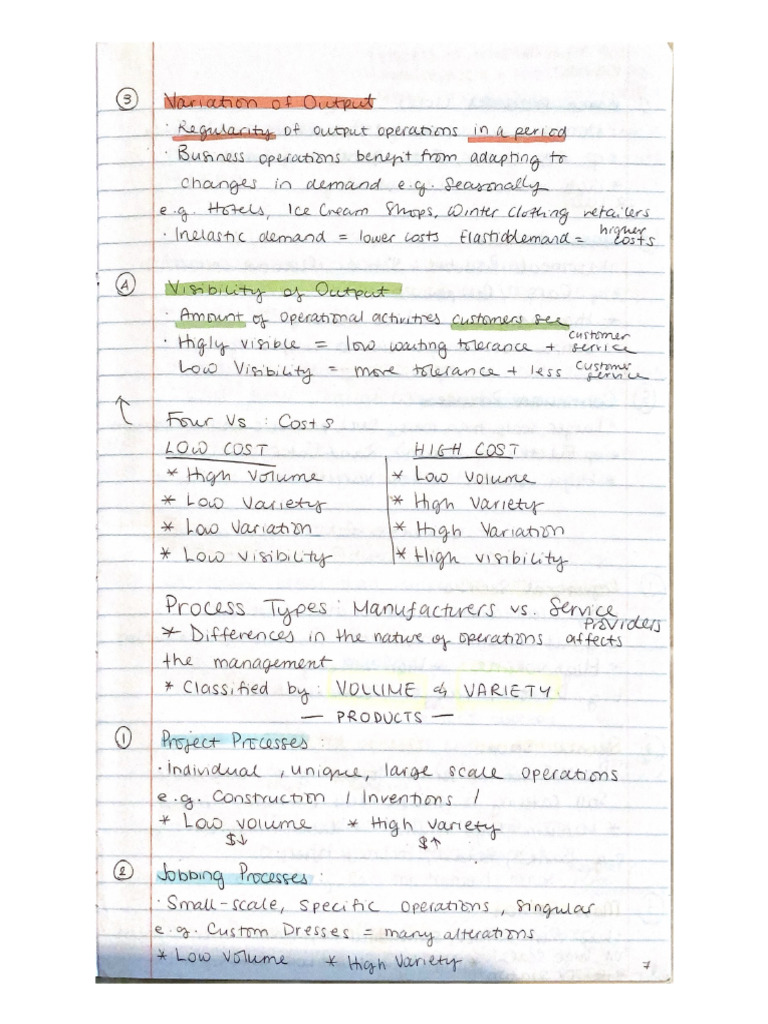 ③ Variation of Output
· Regularity of output operations in a period
· Business operations benefit from adapting to
changes in demand e.g. Seasonally
e.g. Hotels, Ice Cream Shops, Winter Clothing retailers
· Inelastic demand = lower costs Elastic demand = higher costs
④ Visibility of Output
· Amount of operational activities customers see
· Higly visible = low waiting tolerance + customer service
Low Visibility = more tolerance + less customer service
↑ Four Vs : Costs
LOW COST HIGH COST
* High Volume * Low Volume
* Low Variety * High Variety
* Low Variation * High Variation
* Low visibility * High visibility
Process Types: Manufacturers vs. Service Providers
* Differences in the nature of operations affects
the management
* Classified by: VOLUME & VARIETY
— PRODUCTS —
① Project Processes :
· Individual, unique, large scale operations
e.g. Construction / Inventions /
* Low volume * High variety
$↓ $↑
② Jobbing Processes :
· Small-scale, specific operations, singular
e.g. Custom Dresses = many alterations
* Low Volume * High Variety
7